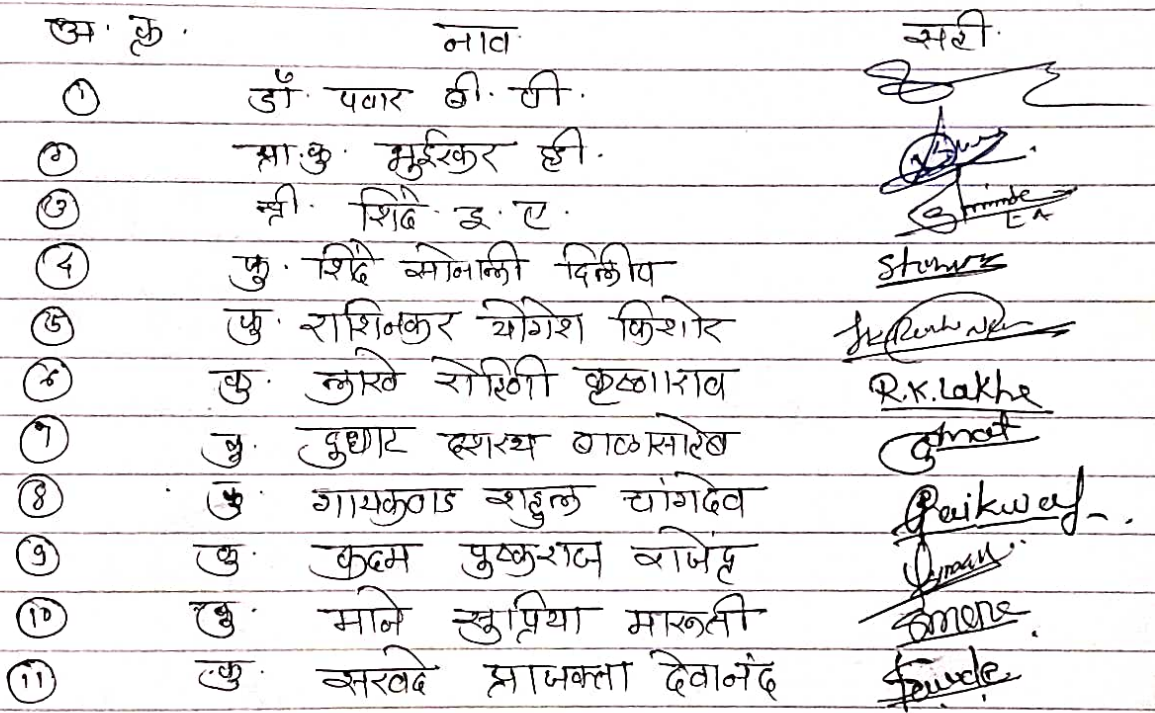 अ. क्र. नाव सही
① डॉ. पवार बी. वी.
② प्रा. कु. भुईरकर डी.
③ श्री. शिंदे इ. ए. Shinde E A
④ कु. शिंदे सोनाली दिलीप
⑤ कु. राशिनकर योगेश किशोर
⑥ कु. लाखे रोहिणी कृष्णाराव R.K. Lakhe
⑦ कु. दुधाट दशरथ बाळासाहेब
⑧ कु. गायकवाड राहुल चांगदेव Gaikwad
⑨ कु. कदम पुष्कराज राजेंद्र
⑩ कु. माने सुप्रिया मारूती Smane
⑪ कु. सरवदे प्राजक्ता देवानंद